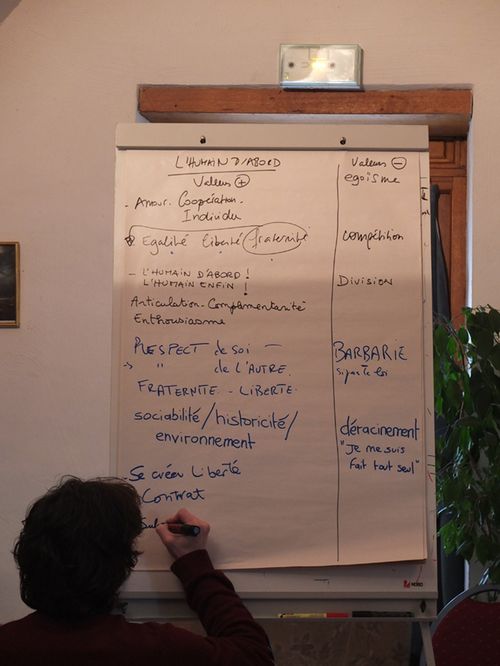 L'HUMAIN D'ABORD
Valeurs +
- Amour. Coopération.
Individu
Egalité liberté - fraternité
- L'HUMAIN D'ABORD !
L'HUMAIN ENFIN !
Articulation - Complémentarité
Enthousiasme
RESPECT de soi -
→ " de L'AUTRE.
FRATERNITE - LIBERTE.
sociabilité / historicité /
environnement
Se créer Liberté
Contrat
Valeurs -
egoïsme
Compétition
Division
BARBARIE
si pas de loi
déracinement
"Je me suis
fait tout seul"
NOBO